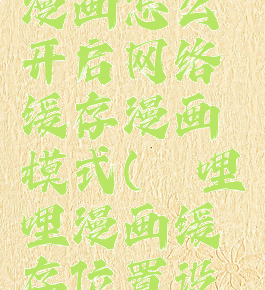 漫画怎么
开启网络
缓存漫画
模式( 哩
哩漫画缓
存位置迷